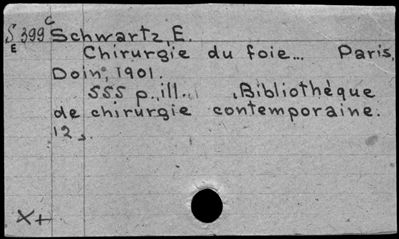 S 399 c Schwartz E.
E Chirurgie du foie... Paris,
Doin, 1901.
555 p., ill. Bibliothèque
de chirurgie contemporaine.
12
X+